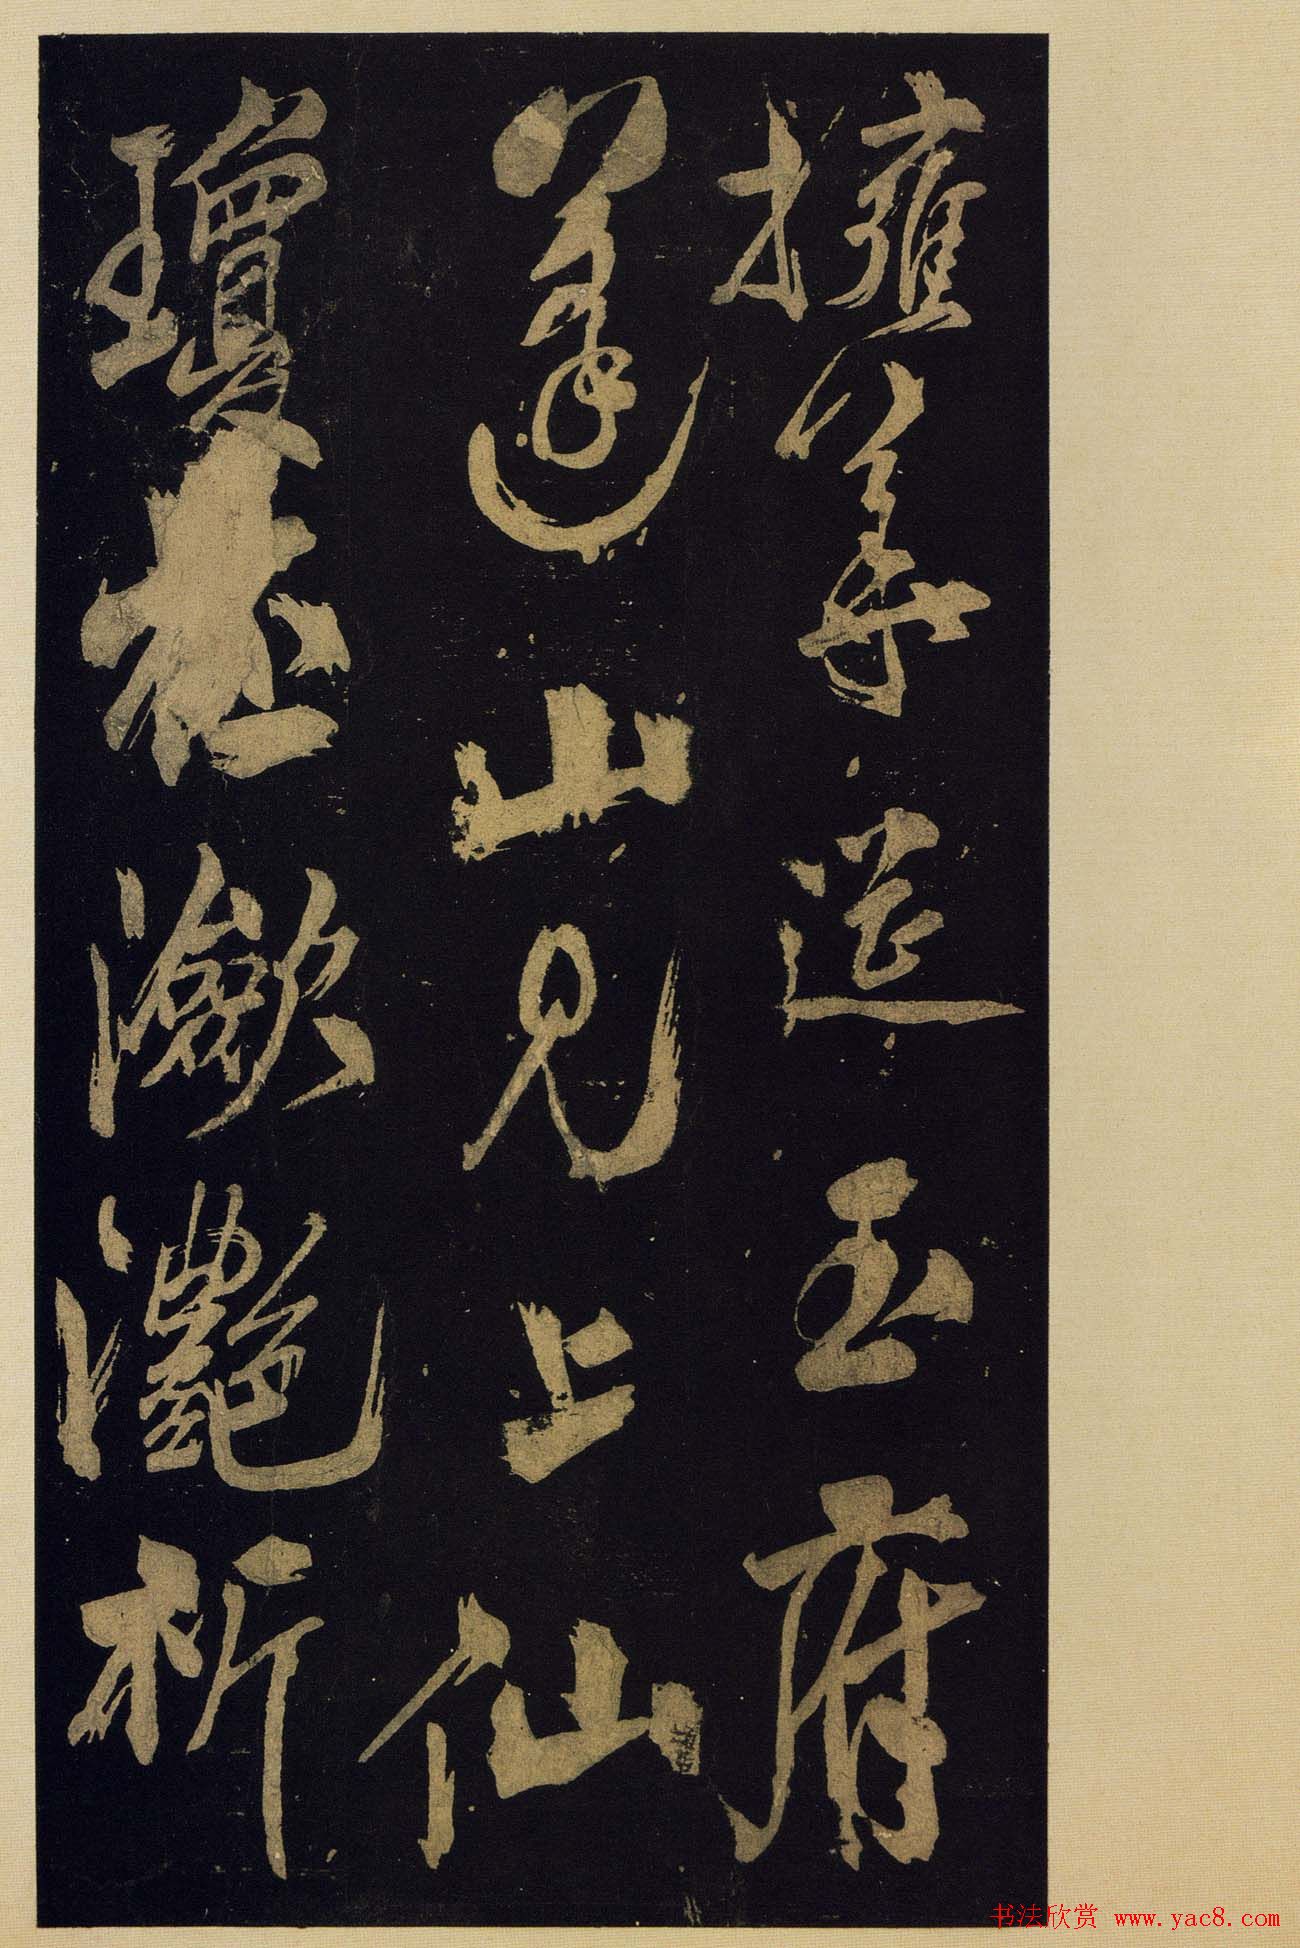 擁造玉府
蓬山見上仙
瓊瀲灧析
书法欣赏 www.yac8.com